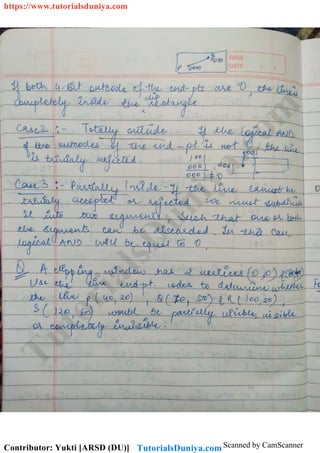 https://www.tutorialsduniya.com
PAGE
DATE
P 0000
0000
If both 4-bit outcode of the end-pts are 0, the line is
completely inside the clip rectangle.
Case 2 :- Totally outside If the logical AND
of two outcodes of the end-pt is not 0, the line
is trivially rejected.
1001
0001
0001 ≠ 0
0001
0001
Case 3 :- Partially Inside - If the line cannot be
trivially accepted or rejected we must subdivide
it into two segments, such that one or both
the segments can be discarded. In this case,
logical AND will be equal to 0.
Q. A clipping window has 2 vertices (0,0) &
Use the line end pt. codes to determine whether
the line P (40, 20), Q (70, 50) & R (100, 20),
S (120, 60) would be partially visible, visible
or completely invisible.
Contributor: Yukti [ARSD (DU)] TutorialsDuniya.com Scanned by CamScanner